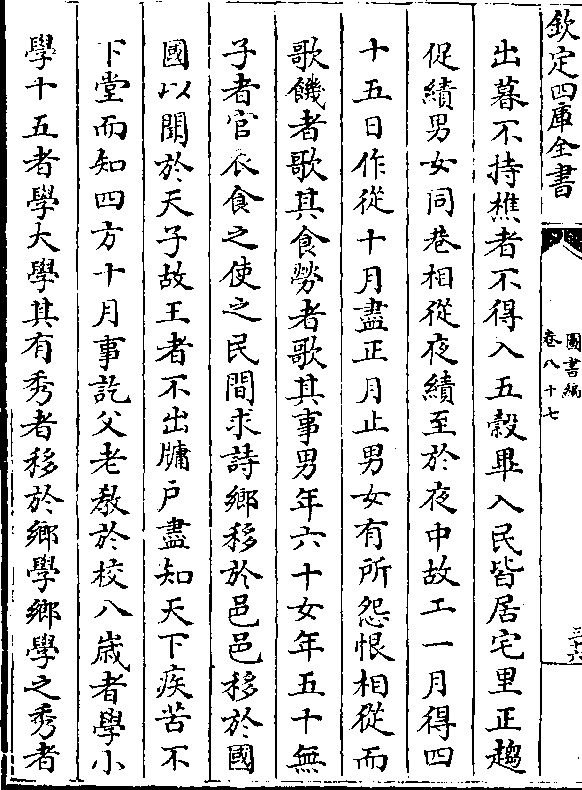 欽定四庫全書
圖書編
卷八十七
三十六
出暮不持樵者不得入五穀畢入民皆居宅里正趨
促績男女同巷相從夜績至於夜中故工一月得四
十五日作從十月盡正月止男女有所怨恨相從而
歌饑者歌其食勞者歌其事男年六十女年五十無
子者官衣食之使之民間求詩鄉移於邑邑移於國
國以聞於天子故王者不出牖户盡知天下疾苦不
下堂而知四方十月事訖父老教於校八嵗者學小
學十五者學大學其有秀者移於鄉學鄉學之秀者